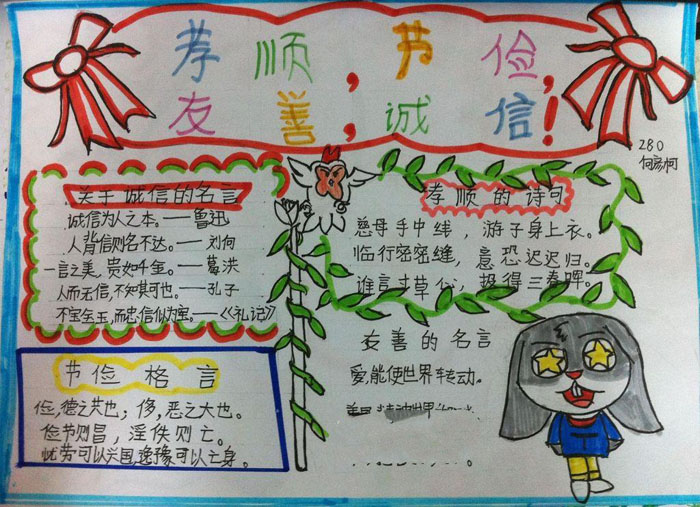 孝顺,节俭,
友善,诚信!
280
何
关于诚信的名言
诚信为人之本。——鲁迅
人背信则名不达。——刘向
一言之美,贵如千金。——葛洪
人而无信,不知其可也。——孔子
不宝金玉,而忠信似为宝。——《礼记》
节俭格言
俭,德之共也;侈,恶之大也。
俭节则昌,淫佚则亡。
忧劳可以兴国,逸豫可以亡身。
孝顺的诗句
慈母手中线,游子身上衣。
临行密密缝,意恐迟迟归。
谁言寸草心,报得三春晖。
友善的名言
爱,能使世界转动。